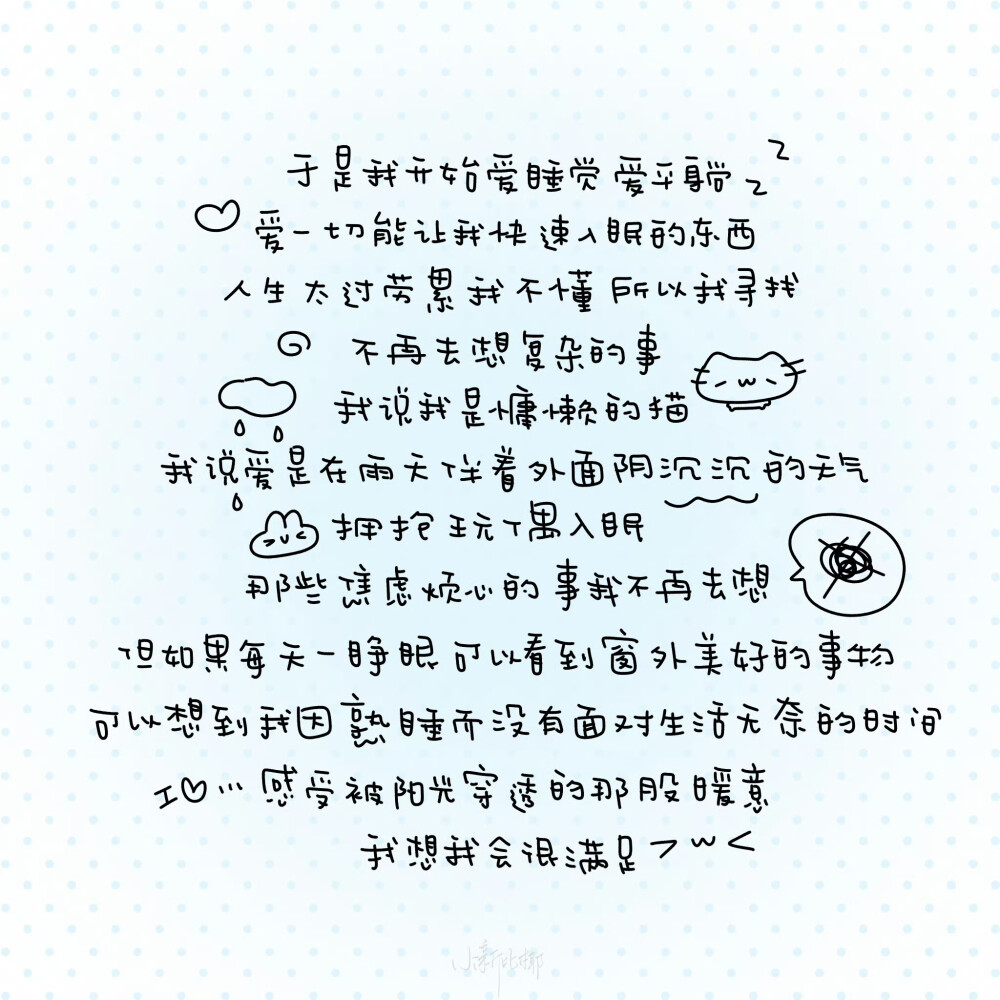 于是我开始爱睡觉 爱平躺 z z
爱一切能让我快速入眠的东西
人生太过劳累我不懂 所以我寻找
不再去想复杂的事
我说我是慵懒的猫
我说爱是在雨天伴着外面阴沉沉的天气
拥抱玩偶入眠
那些焦虑烦心的事我不再去想
但如果每天一睁眼可以看到窗外美好的事物
可以想到我因熟睡而没有面对生活无奈的时间
I♡... 感受被阳光穿透的那股暖意
我想我会很满足 > w <